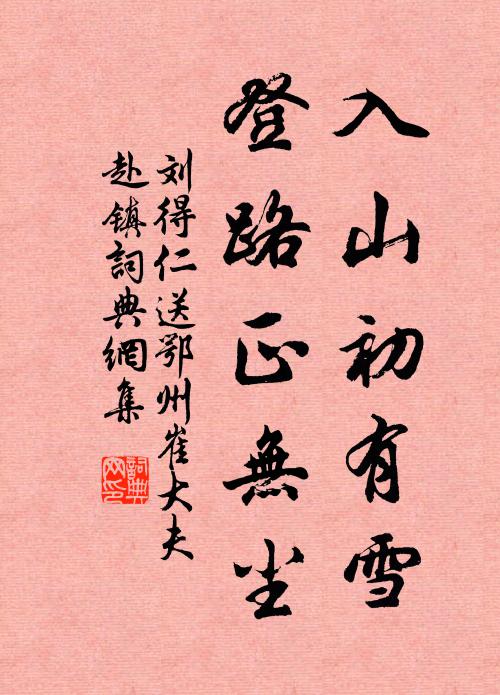 入山初有雪
登路正無尘
刘得仁送鄂州崔大夫
赴镇詞典網集
詞典
网印